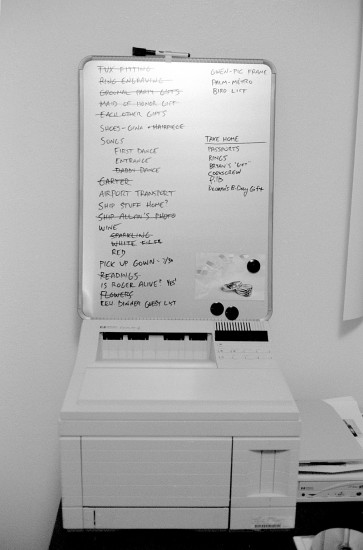 TUX FITTING
RING ENGRAVING
GROOMAL PARTY GIFTS
MAID OF HONOR GIFT
EACH OTHER GIFTS
SHOES - GINA + HAIRPIECE
SONGS
FIRST DANCE
ENTRANCE
DADDY DANCE
GARTER
AIRPORT TRANSPORT
SHIP STUFF HOME?
SHIP ALLAN'S PHOTO
WINE
SPARKLING
WHITE
RED
PICK UP GOWN -
READINGS
IS ROGER ALIVE? YES!
FLOWERS
REH. DINNER GUEST LIST
GWEN - PIC FRAME
PALM - METRO
BIRD LIST
TAKE HOME
PASSPORTS
RINGS
BRYAN'S "GIFT"
CORKSCREW
B-DAY GIFT